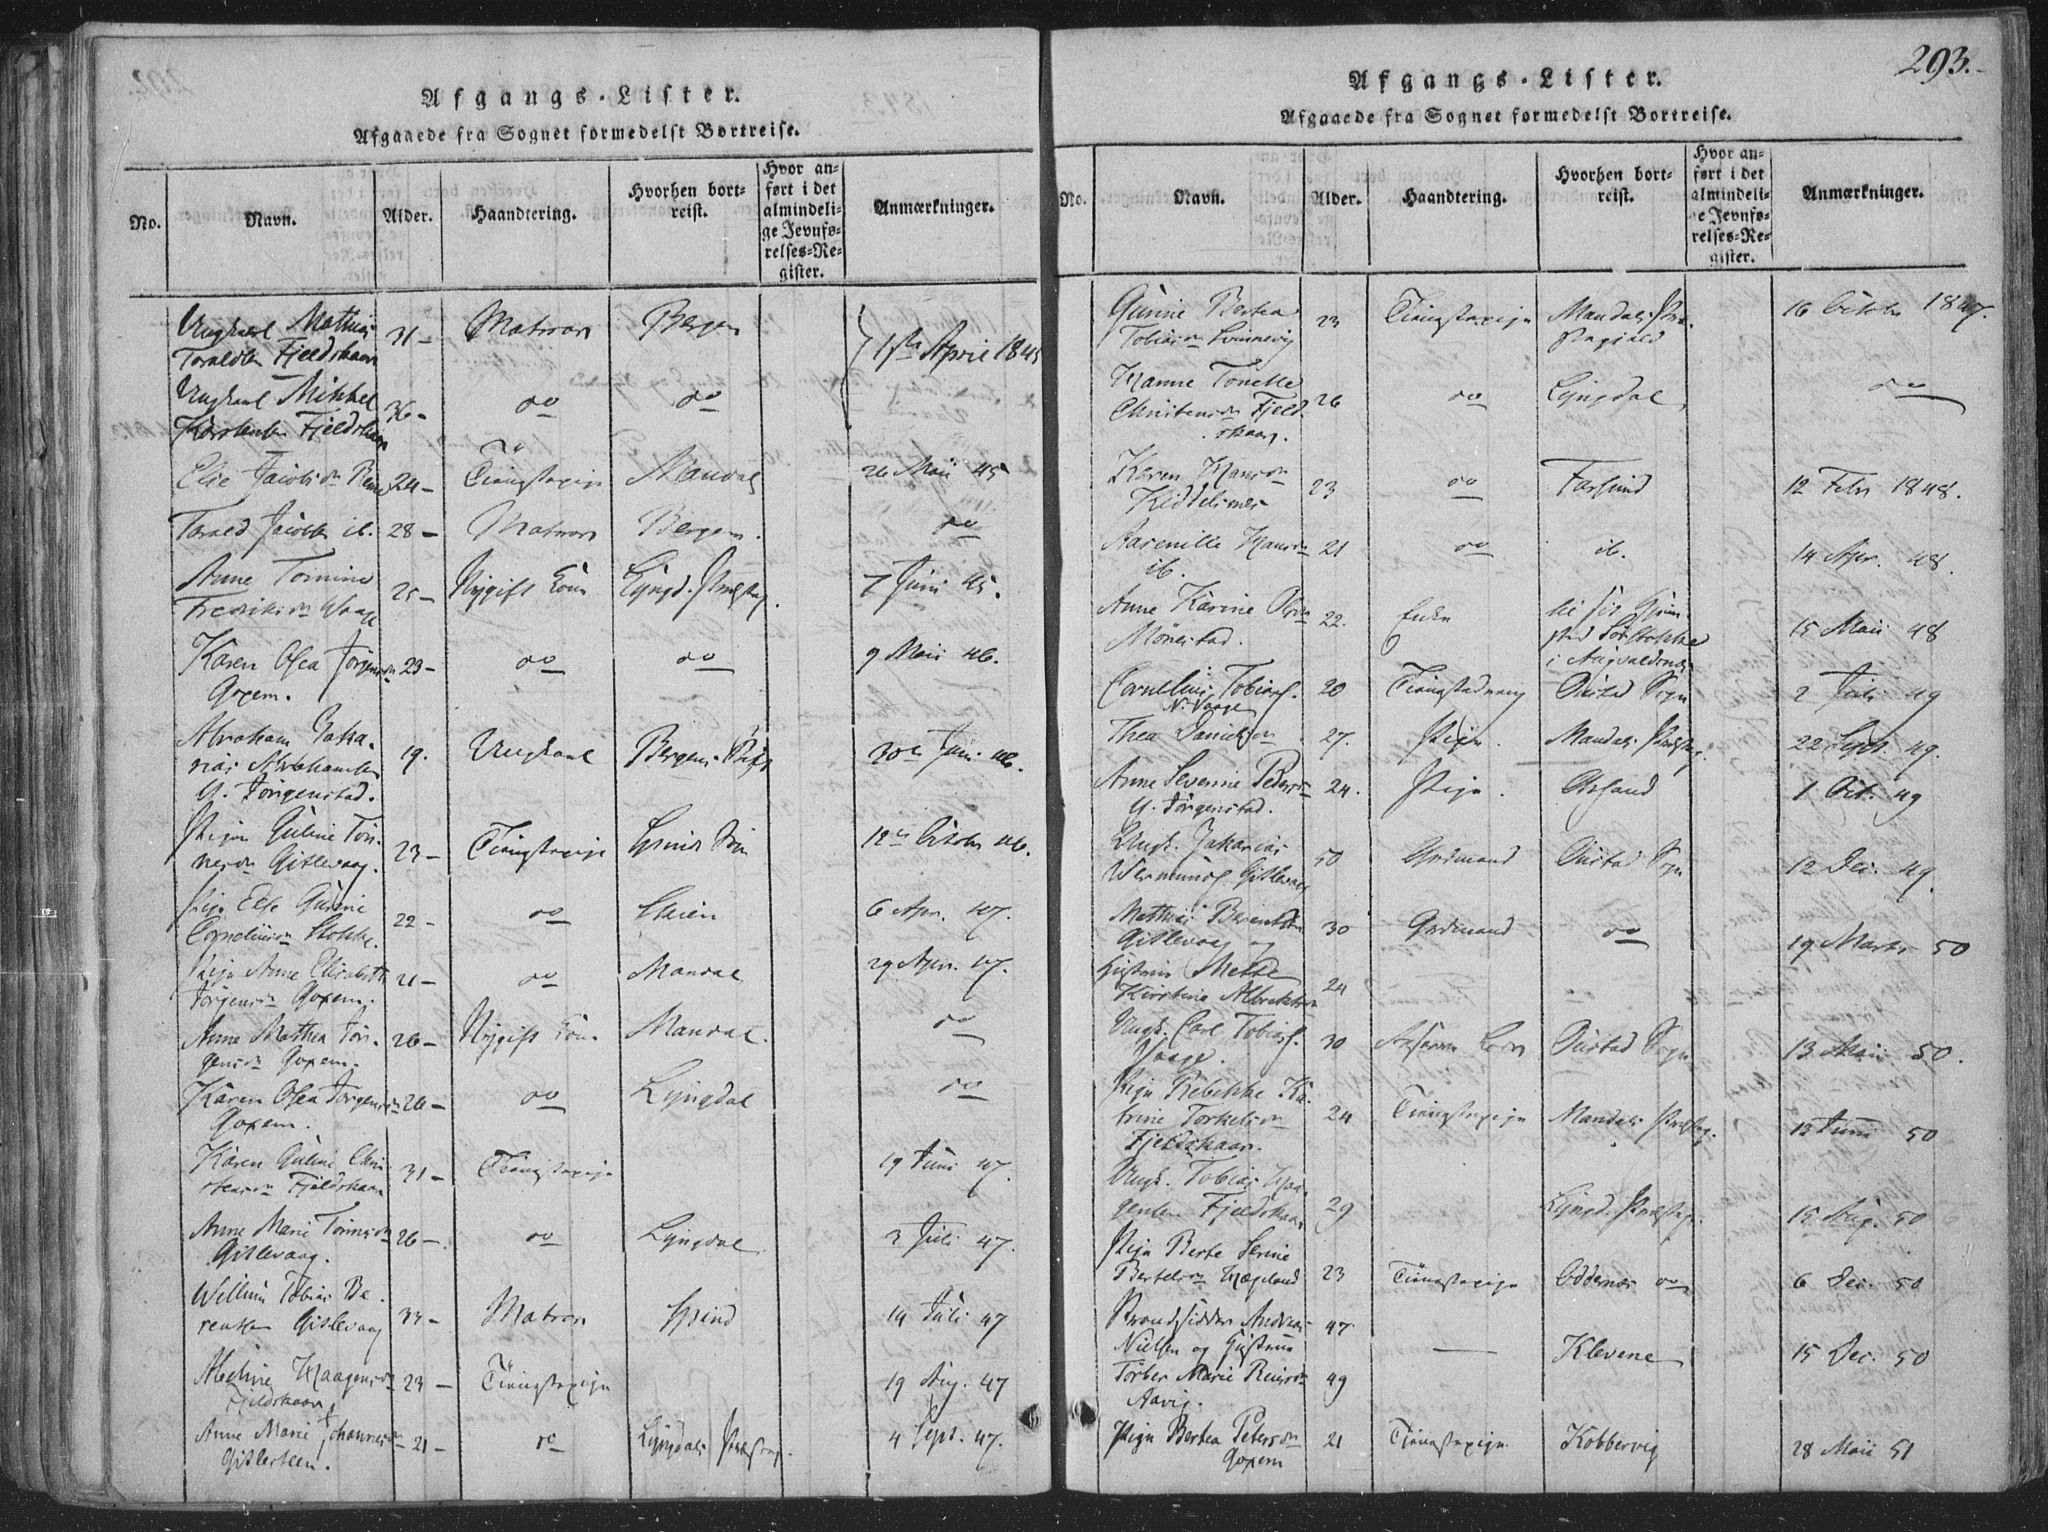 Afgangs-Lister.
Afgaaede fra Sognet formedelst Bortreise.
No. Navn. Alder. Haandtering. Hvorhen bortreist. Hvor anført i det almindelige Jevnførelses-Register. Anmærkninger.
Ungkarl Mathias
Toraldsen Fjeldskaar 31 — Matros Bergen 1ste April 1845
Ungkarl Mikkel
Karstensen Fjeldskaar 36 — do do
Elie Jacobsdr 24 — Tienestepige Mandal 26 Maii 45
Torald Jacobsen ib. 28 — Matros Bergen. do
Anne Tomine
Fredriksdr Waage 25 — Nygift Kone Lyngd. Præsteg. 7 Juni 45.
Karen Osea Jørgensdr
Goxem. 23 — do do 9 Maii 46.
Abraham Zaka-
rias Abrahamsen
Y. Jörgenstad. 19. Ungkarl Bergens Stift 30te Juni 46.
Pigen Guline Tön-
nesdr Gislevaag. 23 — Tienestepige Spinds Sogn 12te Octobr 46.
Pige Else Gurine
Corneliusdr Stokke. 22 — do 6 Apr. 47.
Pige Anne Elisabeth
Jörgensdr Goxem. 21 — do Mandal 29 Apr. 47.
Anne Mathea Jör-
gensdr Goxem. 26 — Nygift Kone Mandal. do
Karen Osea Jörgensdr
Goxem. 26 — do Lyngdal do
Karen Guline Chri-
stensdr Fjeldskaar 31 — Tienestepige 19 Juni 47.
Anne Marie Tönnesdr
Gislevaag. 26 — do Lyngdal 2 Juli 47.
Willum Tobias Be-
rentsen Gislevaag 33 — Matros Spind 14 Juli 47
Abeline Haagensdr
Fjeldskaar 23 — Tienestepige 19 Aug. 47
Anne Marie Johannesdr
Gislesteen. 21 — do Lyngdals Præsteg. 4 Sept. 47.
293.
Afgangs-Lister.
Afgaaede fra Sognet formedelst Bortreise.
No. Navn. Alder. Haandtering. Hvorhen bortreist. Hvor anført i det almindelige Jevnførelses-Register. Anmærkninger.
Gurine Bertea
Tobiasdr 23 Tienestepige Mandals Præstegield 16 Octobr 1847.
Hanne Tonette
Christensdr Fjeld-
skaar. 26 do Lyngdal do
Karen Hansdr
Kiddelsnes 23 do Farsund 12 Febr 1848.
Aarenille Hansdr
ib. 21 do ib. 14 Apr. 48.
Anne Karine Olsdr
Mönestad. 22. Enke i Augvaldsnes 15 Maii 48
Cornelius Tobias.
N. Vaage 20 Öistad Sogn 2 Juli 49
Thea Danielsdr 27. Pige. Mandals Præsteg. 22 Sept. 49.
Anne Severine Pedersdr
Y. Jörgenstad. 24. Pige. 1 Oct. 49
Ungk. Zakarias
Wermunds. Gislevaag 50 Gaardmand Öistad Sogn 12 Dec. 49.
Mathias Berentsen
Gislevaag og 30 Gaardmand do 19 Marts 50
Hustrue Mette
Kirstine Albretsdr 24
Ungk. Carl Tobias.
Vaage. 30 Öistad Sogn 13 Maii 50.
Pige Rebekke Ka-
trine Torkelsdr
Fjeldskaar. 24 Tienestepige Mandals Præsteg. 15 Juni 50
Ungk. Tobias Haa-
gensen Fjeldskaar 29 Lyngd. Præsteg. 15 Aug. 50
Pige Berte Serine
Bertelsdr Hægeland 23 Tienestepige Oddernes do 6 Dec. 50
Strandsidder Andreas 47
Nielsen og Hustrue — Klevene 15 Dec. 50
Torber Marie Reiersdr 49
Aavig.
Pige Bertea Petersdr
Goxem 21 Tienestepige Kobbervig 28 Maii 51